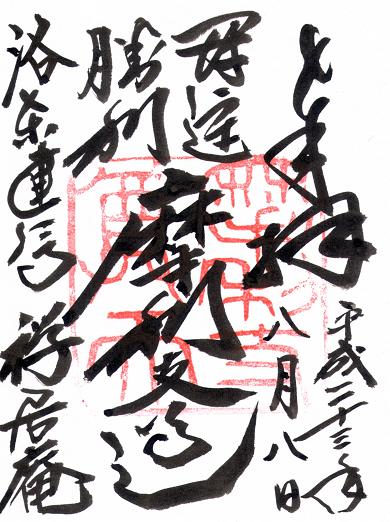 奉拝
平成二十三年
八月八日
開運
勝利
摩利支尊天
洛東建仁寺 禅居庵